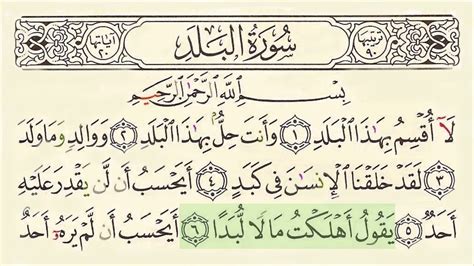 ترتيبها ٩٠ سُورَةُ البَلَدِ آياتها ٢٠
بِسْمِ ٱللَّهِ ٱلرَّحْمَٰنِ ٱلرَّحِيمِ
لَآ أُقْسِمُ بِهَٰذَا ٱلْبَلَدِ ١ وَأَنتَ حِلٌّۢ بِهَٰذَا ٱلْبَلَدِ ٢ وَوَالِدٍ وَمَا وَلَدَ
٣ لَقَدْ خَلَقْنَا ٱلْإِنسَٰنَ فِى كَبَدٍ ٤ أَيَحْسَبُ أَن لَّن يَقْدِرَ عَلَيْهِ
أَحَدٌ ٥ يَقُولُ أَهْلَكْتُ مَالًا لُّبَدًا ٦ أَيَحْسَبُ أَن لَّمْ يَرَهُۥٓ أَحَدٌ